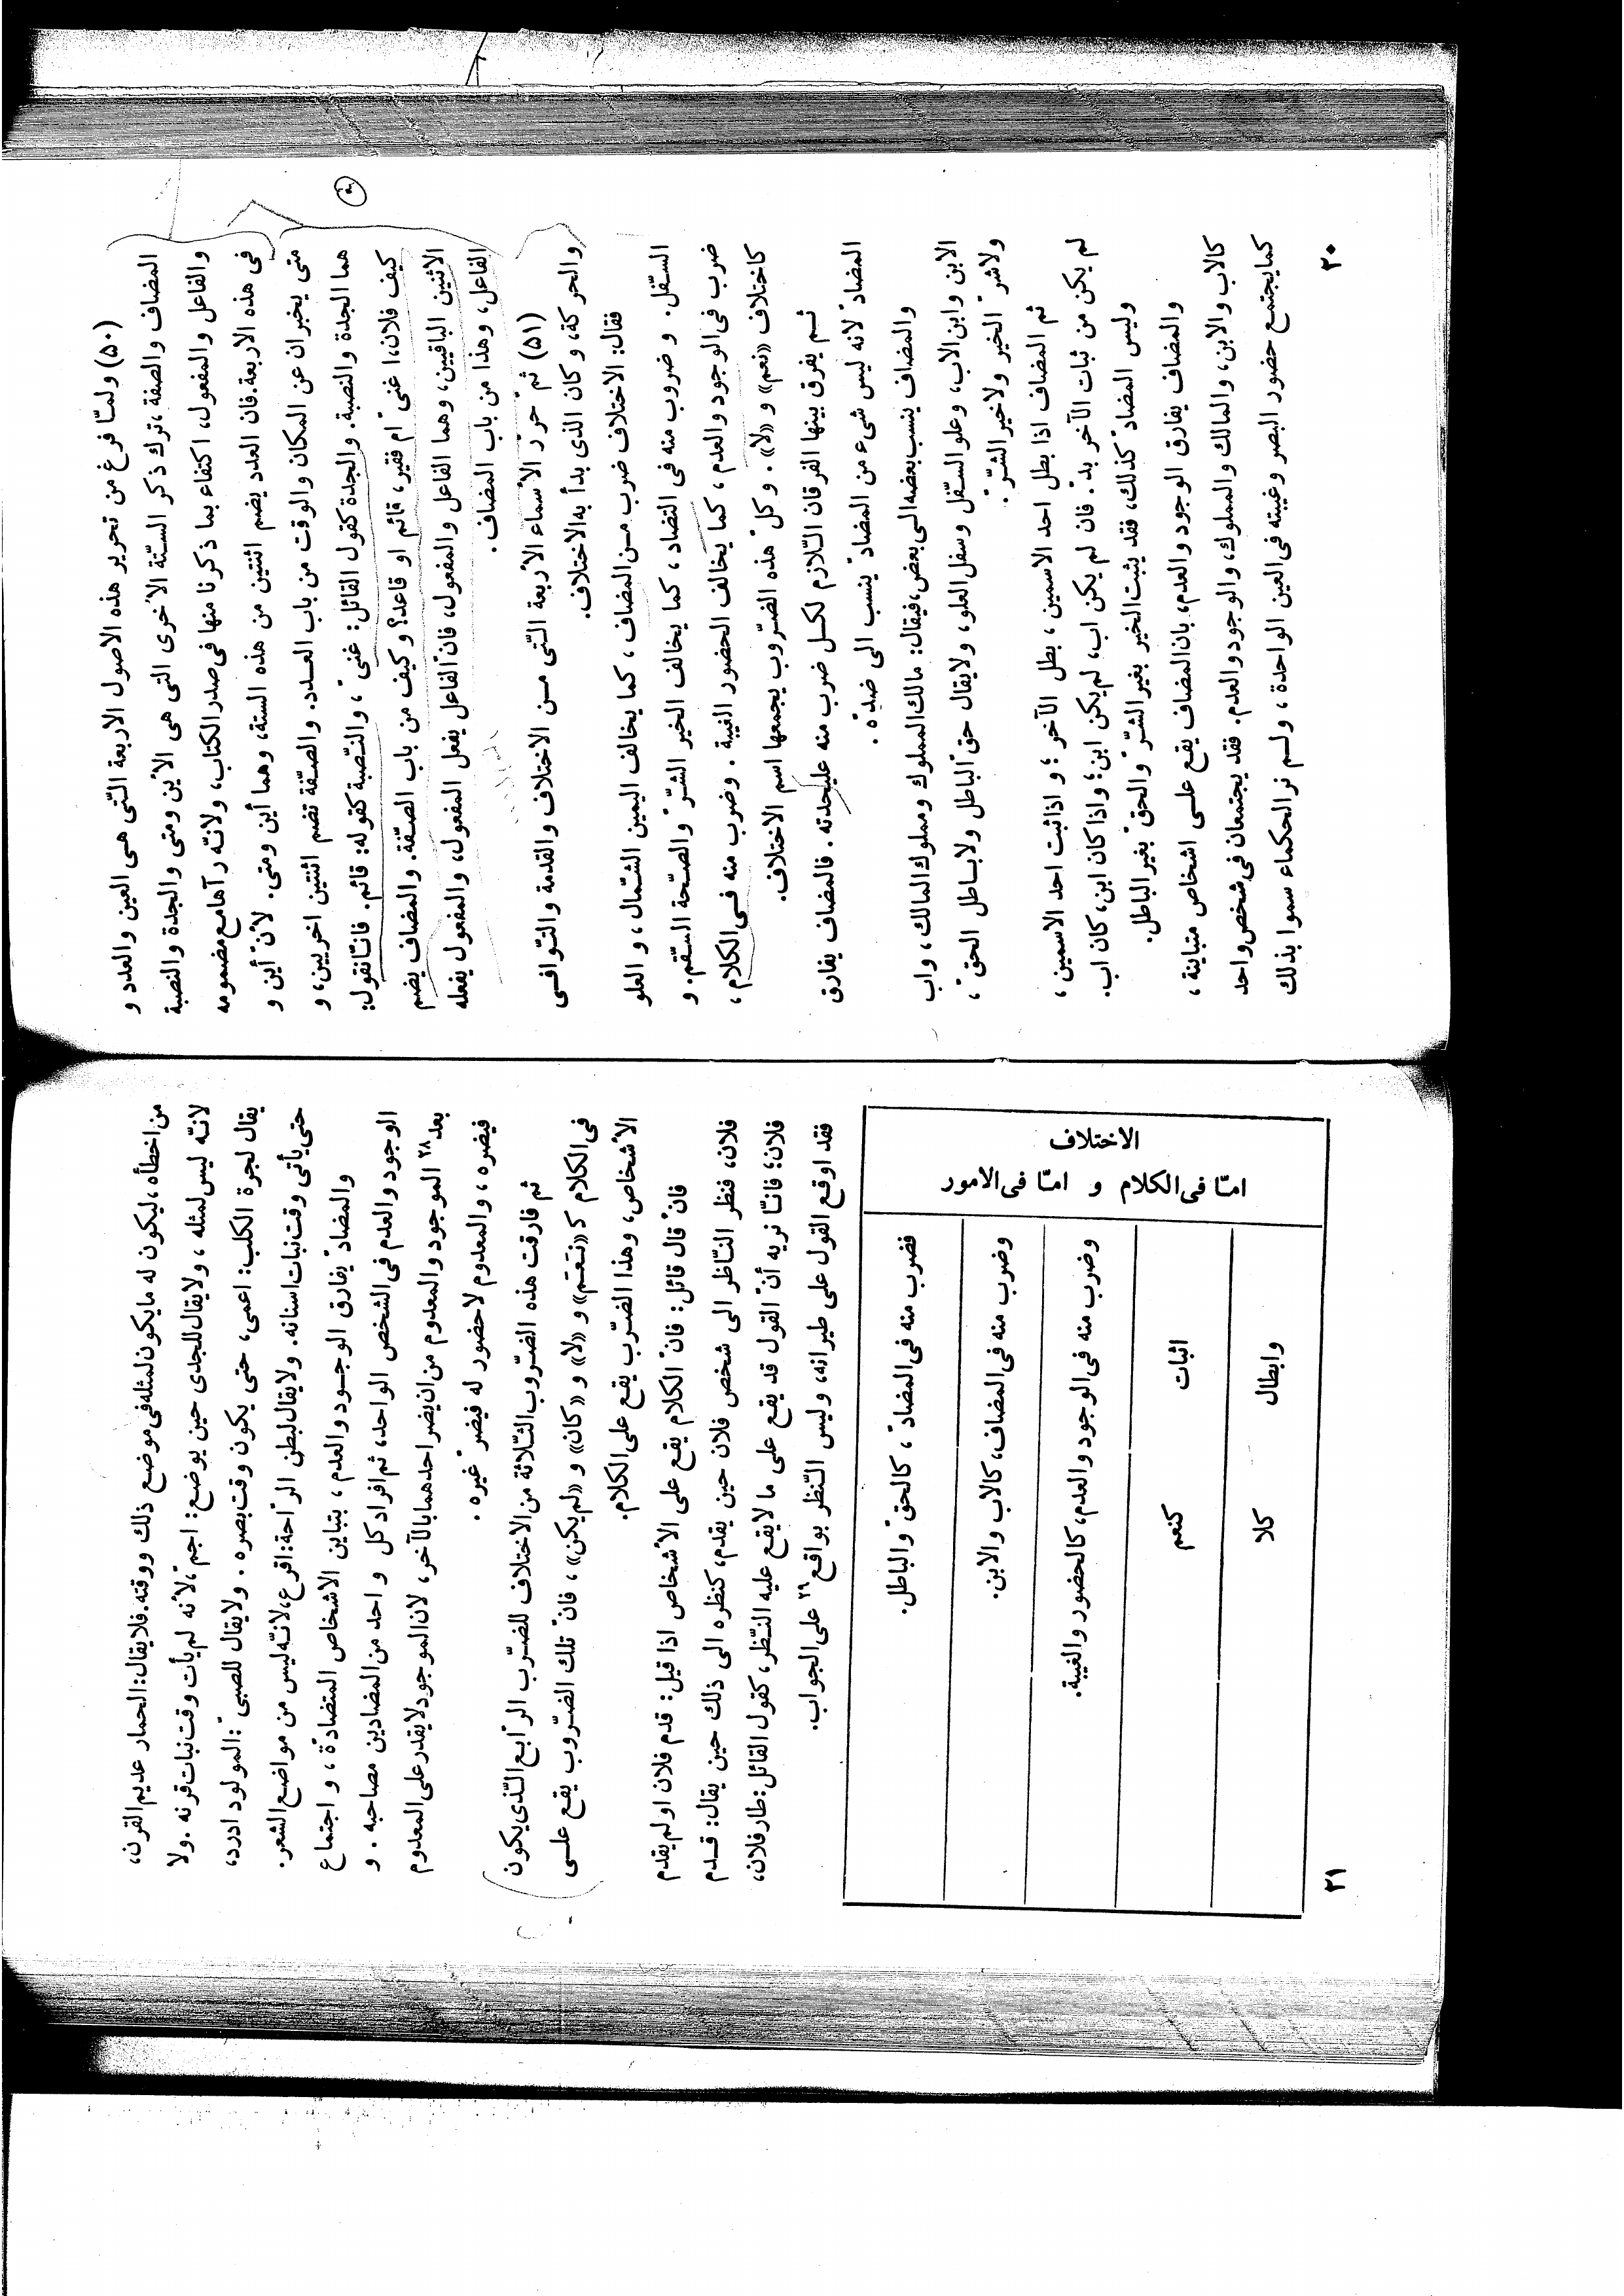 (۵۰) ولمّا فرغ من تحریر هذه الاصول الاربعة التّی هی العین والعدد و
المضاف والصفة، ترك ذكر الستّة الأخرى التی هی الأین ومتی والجدة والنصبة
والفاعل والمفعول، اكتفاء بما ذكرنا منها فی صدر الكتاب، ولانّه رآها مع مضمومه
فی هذه الاربعة. فان العدد یضم اثنتین من هذه الستة، وهما أین ومتی. لأنّ أین و
متی یخبران عن المكان والوقت من باب العدد. والصّفة تضم اثنتین اخریین، و
هما الجدة والنصبة. والجدة كقول القائل: غنیّ، والنّصبة كقوله: قائم. فانّا نقول:
كیف فلان، اغنیّ ام فقیر، قائم او قاعد؟ وكیف من باب الصّفة. والمضاف یضم
الاثنین الباقیین، وهما الفاعل والمفعول، فانّ الفاعل یفعل المفعول، والمفعول یفعله
الفاعل، وهذا من باب المضاف.
(۵۱) ثم حرّد الأسماء الأربعة التّی من الاختلاف والقدمة والتّوافی
والحركة، وكان الذی بدأ به الاختلاف.
فقال: الاختلاف ضرب من المضاف، كما یخالف الیمین الشّمال، و العلو
السّفل. و ضروب منه فی التضاد، كما یخالف الخیر الشّرّ والصّحة السّقم. و
ضرب فی الوجود والعدم، كما یخالف الحضور الغیبة. وضرب منه فی الكلام،
كاختلاف «نعم» و «لا». وكلّ هذه الضّروب یجمعها اسم الاختلاف.
ثم یفرق بینها الفرقان الّلازم لكل ضرب منه علیحدته. فالمضاف یفارق
المضادّ لانه لیس شیء من المضادّ ینسب الی ضدّه.
والمضاف ینسب بعضه الی بعض، فیقال: مالك المملوك ومملوك المالك، واب
الابن وابن الاب، وعلو السّفل وسفل العلو، ولایقال حقّ الباطل ولاباطل الحقّ،
ولاشرّ الخیر ولاخیر الشّرّ.
ثم المضاف اذا بطل احد الاسمین، بطل الآخر؛ و اذا ثبت احد الاسمین،
لم یكن من ثبات الآخر بدّ. فان لم یكن اب، لم یكن ابن؛ واذا كان ابن، كان اب.
ولیس المضادّ كذلك، فقد یثبت الخیر بغیر الشّرّ والحقّ بغیر الباطل.
والمضاف یفارق الوجود والعدم، بان المضاف یقع علی اشخاص متباینة،
كالاب والابن، والمالك والمملوك، والوجود والعدم. فقد یجتمعان فی شخص واحد
كما یجتمع حضور البصر وغیبته فی العین الواحدة، ولم نر الحكماء سموا بذلك
۲۰
من اخطأه، لیكون له مایكون لمثله فی موضع ذلك ووقته. فلایقال: الحمار عدیم القرن،
لانّه لیس لمثله، ولایقال للجدی حین یوضع: اجمّ، لأنه لم یأت وقت نبات قرنه. ولا
یقال لجرة الكلب: اعمی، حتی یكون وقت بصره. ولایقال للصبیّ: المولود ادرد،
حتی یأتی وقت نبات اسنانه. ولایقال لبطن الرّاحة: اقرع، لانّه لیس من مواضع الشعر.
والمضادّ یفارق الوجود والعدم، بتباین الاشخاص المتضادّة، و اجتماع
الوجود والعدم فی الشخص الواحد، ثم افراد كل واحد من المضادین مصاحبه. و
بعد ۲۸ الموجود والمعدوم من ان یضر احدهما بالآخر، لان الموجود لایقدر علی المعدوم
فیضره، والمعدوم لاحضور له فیضرّ غیره.
ثم فارقت هذه الضّروب الثّلاثة من الاختلاف للضّرب الرّابع الّذی یكون
فی الكلام كـ «نعم» و «لا» و «كان» و «لم یكن»، فانّ تلك الضّروب یقع علی
الأشخاص، وهذا الضّرب یقع علی الكلام.
فانّ قال قائل: فانّ الكلام یقع علی الأشخاص اذا قیل: قدم فلان او لم یقدم
فلان، فنظر النّاظر الی شخص فلان حین یقدم، كنظره الی ذلك حین یقال: قدم
فلان؛ فانّا نریه أنّ القول قد یقع علی ما لایقع علیه النّظر، كقول القائل: طار فلان،
فقد اوقع القول علی طیرانه، ولیس النّظر بواقع ۲۹ علی الجواب.
الاختلاف
امّا فی الكلام و امّا فی الامور
فضرب منه فی المضادّ، كالحقّ والباطل.
وضرب منه فی المضاف، كالاب والابن.
وضرب منه فی الوجود والعدم، كالحضور والغیبة.
اثبات كنعم
وابطال كلا
۲۱